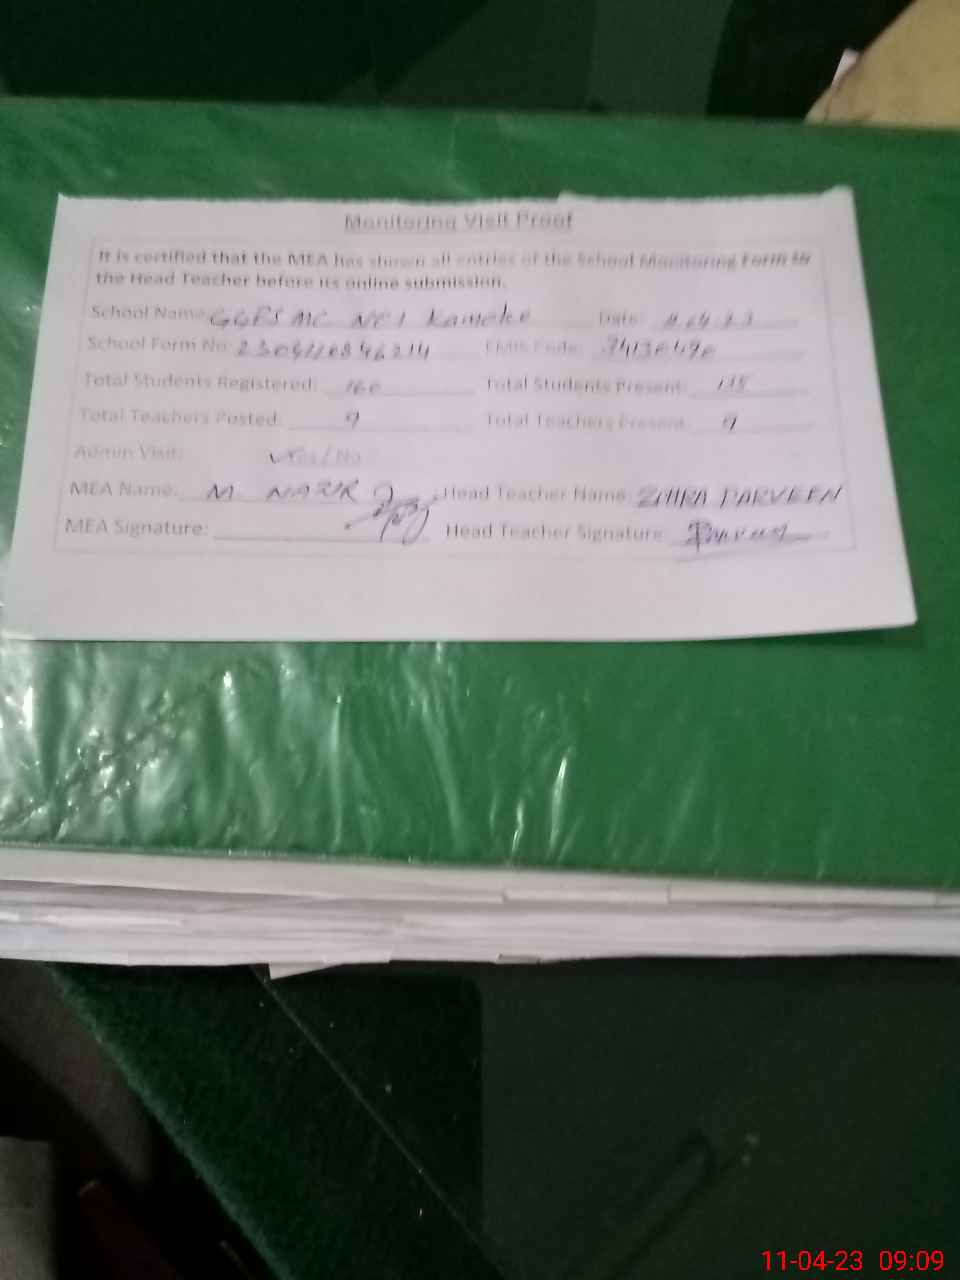 Monitoring Visit Proof
It is certified that the MEA has shown all entries of the School Monitoring Form to
the Head Teacher before its online submission.
School Name: GGPS MC NO1 Kamoke Date:
School Form No: EMIS Code:
Total Students Registered: 160 Total Students Present:
Total Teachers Posted: 9 Total Teachers Present: 9
Admin Visit: Yes/No
MEA Name: M NAZIR Head Teacher Name: PARVEEN
MEA Signature: Head Teacher Signature:
11-04-23 09:09